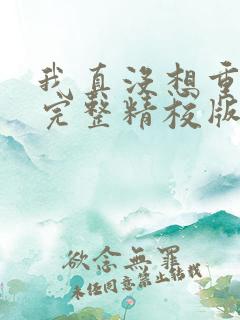 我真没想重
完整精校版
欲念無罪
未经同意禁止转载